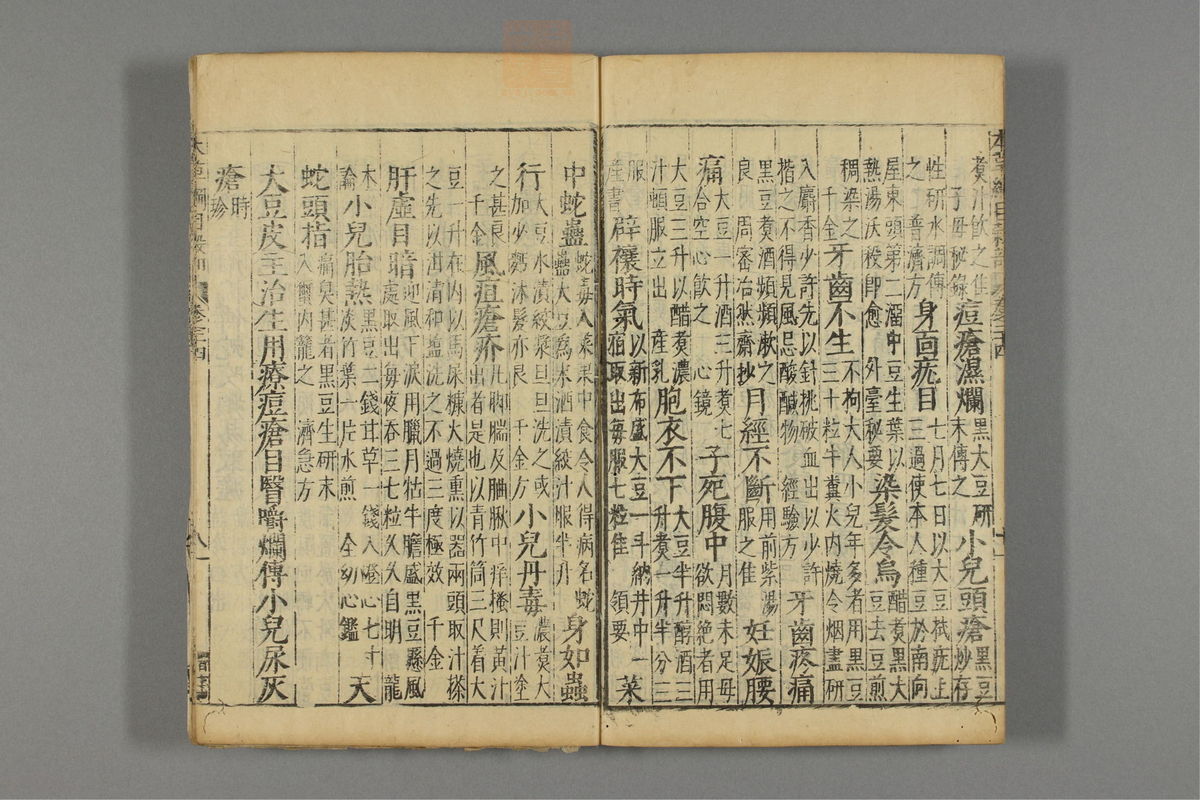 煑汁飲之佳
子母秘錄
痘瘡濕爛
黑大豆研
末傅之
小兒頭瘡
黑豆
炒存
性研水調傅
之 普濟方
身面疣目
七月七日以大豆拭疣上
三過使本人種豆於南向
屋東頭第二溜中豆生葉以
熱湯沃殺即愈 外臺秘要
染髮令烏
醋煑黑大
豆去豆煎
稠染之
千金
牙齒不生
不拘大人小兒年多者用黑豆
三十粒牛糞火内燒令烟盡研
入麝香少許先以針挑破血出以少許
揩之不得見風忌酸鹹物 經驗方
牙齒疼痛
黑豆煑酒頻頻漱之
良 周密浩然齋抄
月經不斷
用前紫湯
服之佳
妊娠腰
痛
大豆一升酒三升煑七
合空心飲之 心鏡
子死腹中
月數未足母
欲悶絶者用
大豆三升以醋煑濃
汁頓服立出 產乳
胞衣不下
大豆半升醇酒三
升煑一升半分三
服
產書
辟禳時氣
以新布盛大豆一斗納井中一
宿取出每服七粒佳 領要
菜
中蛇蠱
蛇毒入菜果中食令人得病名蛇
蠱大豆爲末酒漬絞汁服半升
身如蟲
行
大豆水漬絞漿旦旦洗之或
加少麪沐髮亦良 千金方
小兒丹毒
濃煑大
豆汁塗
之甚良
千金
風疽瘡疥
凡脚腨及䐐中痒搔則黃汁
出者是也以青竹筒三尺着大
豆一升在内以馬屎糠火燒熏以器兩頭取汁搽
之先以泔清和鹽洗之不過三度極效 千金
肝虛目暗
迎風下淚用臘月牯牛膽盛黑豆懸風
處取出每夜吞三七粒久久自明 龍
木
論
小兒胎熱
黑豆二錢甘草一錢入燈心七寸
淡竹葉一片水煎 全幼心鑑
天
蛇頭指
痛臭甚者黑豆生研末
入繭内籠之 濟急方
大豆皮主治生用療痘瘡目瞖嚼爛傅小兒尿灰
瘡
時
珍